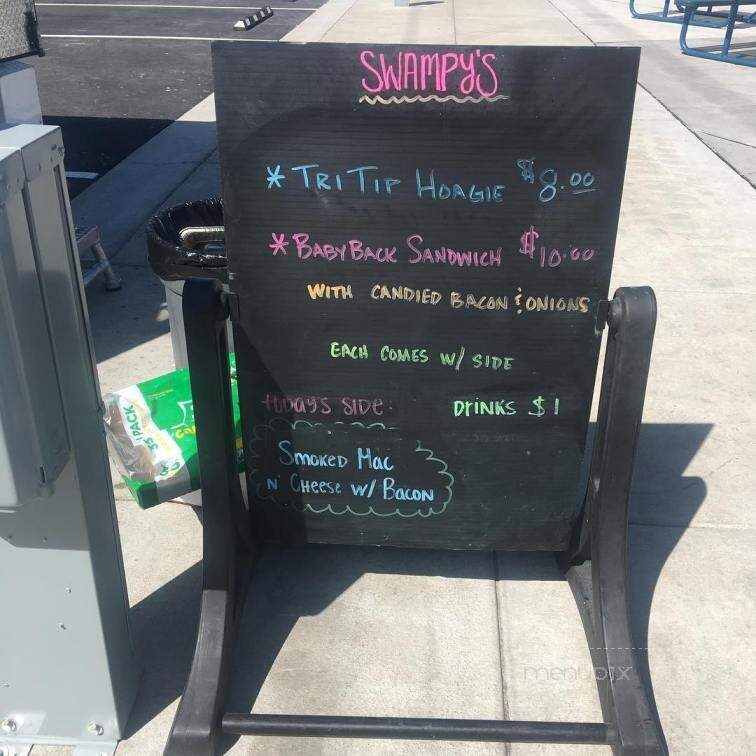 SWAMPY'S
* TRI TIP HOAGIE $8.00
* BABY BACK SANDWICH $10.00
WITH CANDIED BACON & ONIONS
EACH COMES W/ SIDE
today's side: Drinks $1
SMOKED MAC
N' CHEESE W/ BACON
PACK
menupix